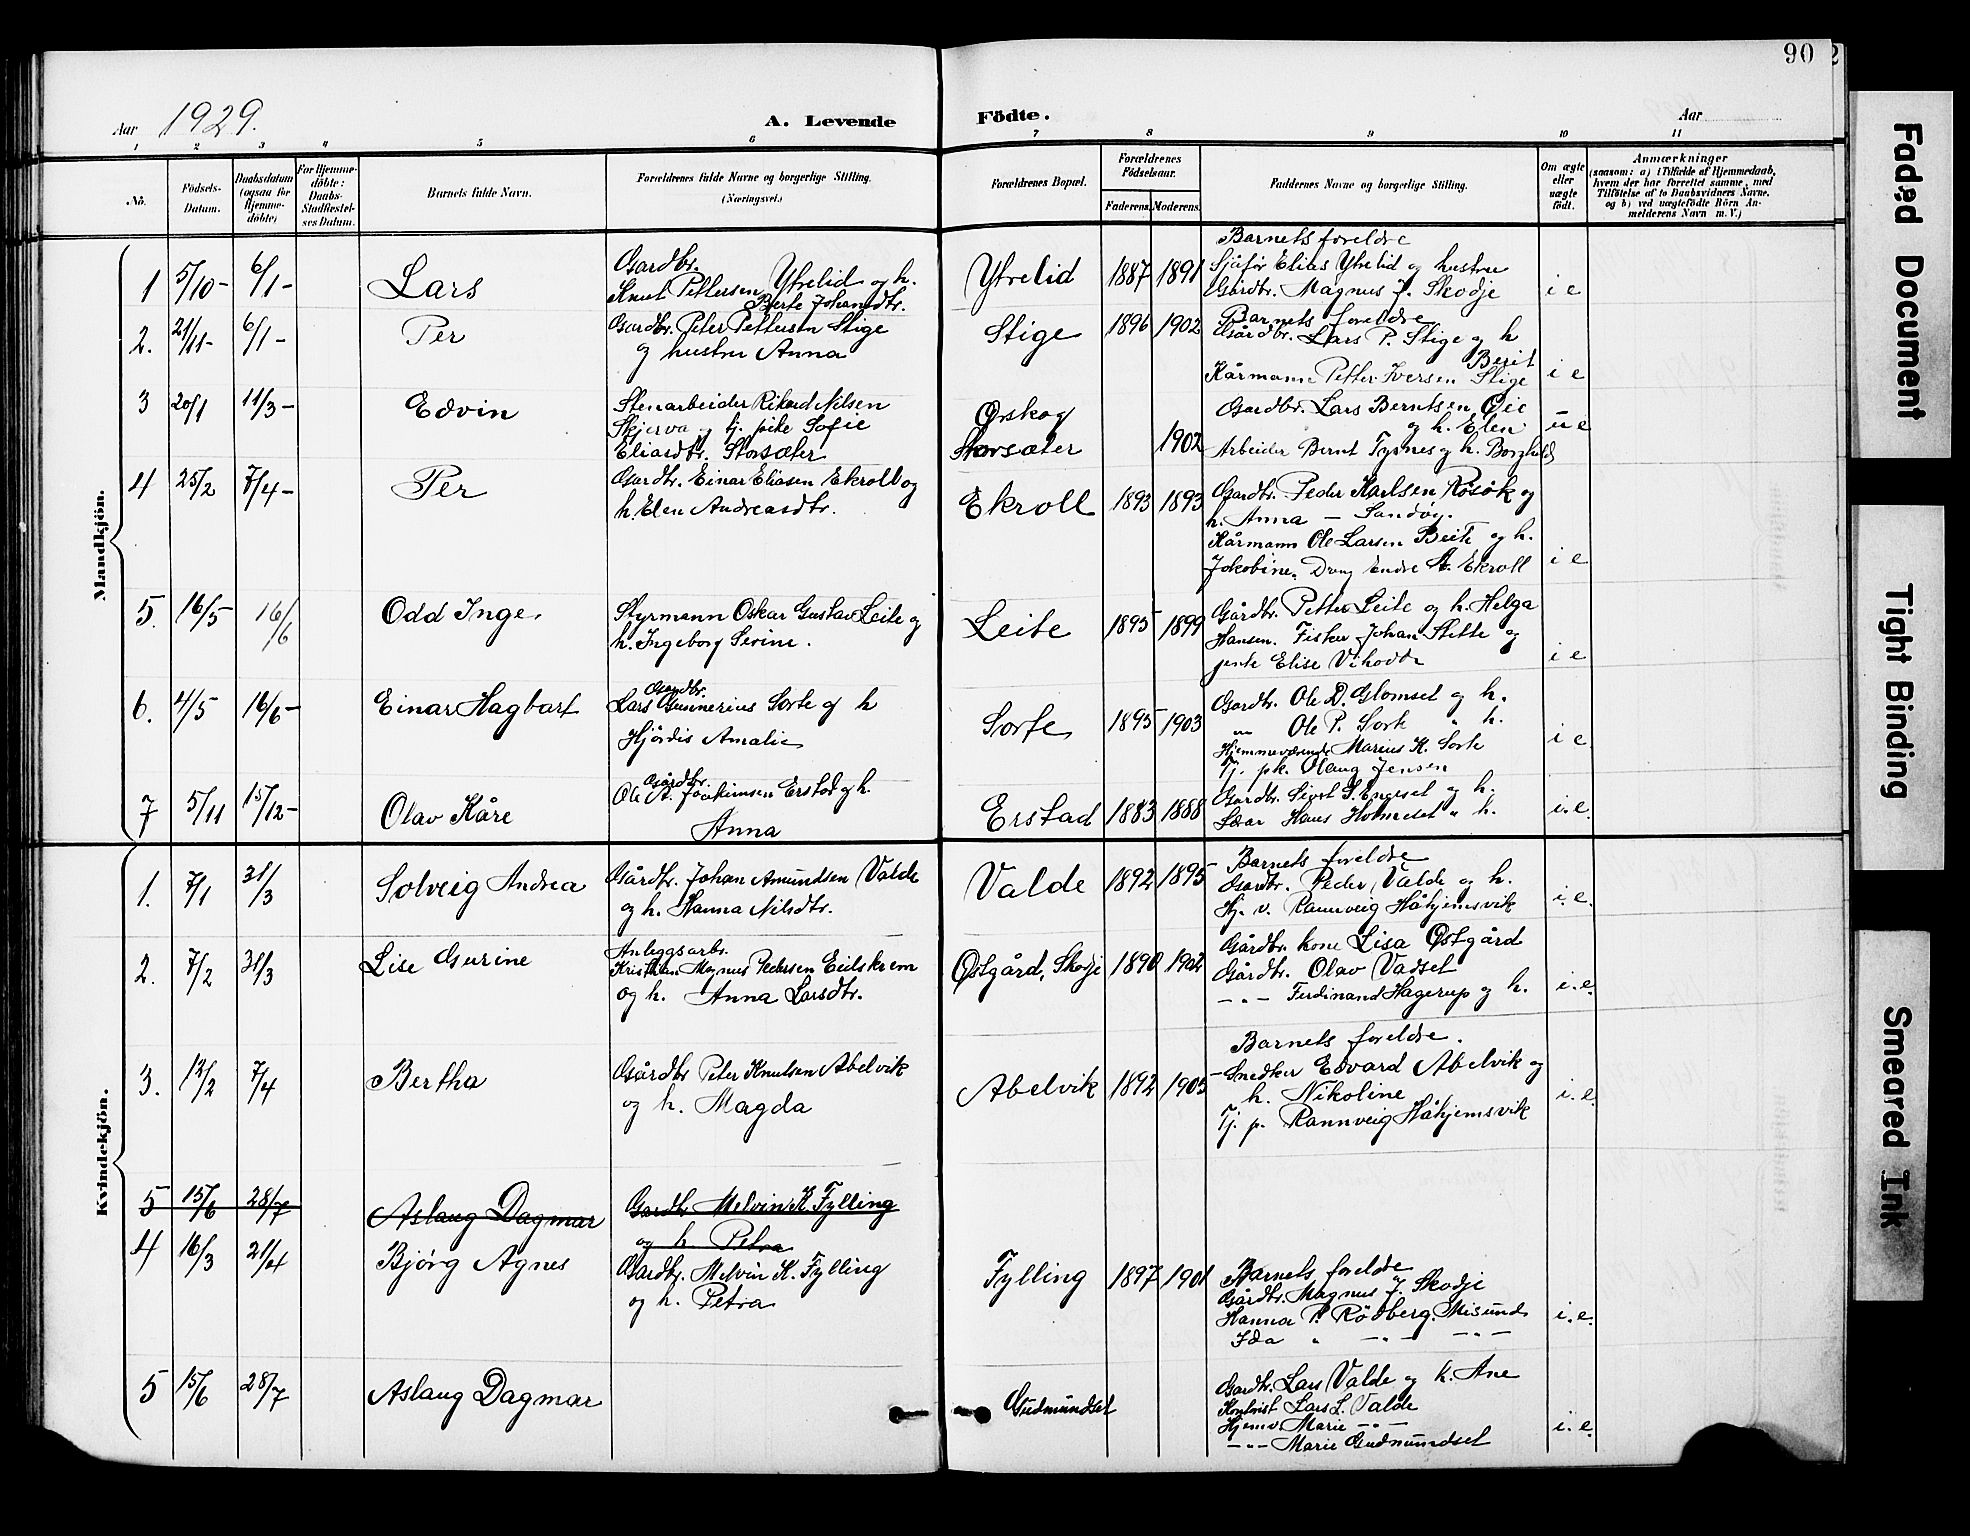 90 2
Aar 1929. A. Levende Födte. Aar
1 2 3 4 5 6 7 8 9 10 11
No.
Födsels-Datum.
Daabsdatum (ogsaa for Hjemme-döbte)
For Hjemme-döbte: Daabs-Stadfæstel-ses Datum.
Barnets fulde Navn.
Forældrenes fulde Navne og borgerlige Stilling. (Næringsvei.)
Forældrenes Bopæl.
Forældrenes Födselsaar.
Faderens. Moderens.
Faddernes Navne og borgerlige Stilling.
Om ægte eller uægte födt.
Anmærkninger
(saasom: a) i Tilfælde af Hjemmedaab,
hvem der har forrettet samme, med
Tilföielse af to Daabsvidners Navne.
og b) ved uægtefödte Börn An-
melderens Navn m. V.)
Mandkjön.
1 5/10- 6/1- Lars
Gardbr.
Knut Pettersen Ytrelid og h.
Berte Johansdtr.
Ytrelid 1887 1891
Barnets foreldre
Sjåfør Elias Ytrelid og hustru
Gårdbr. Magnus J. Skodje
i e
2. 21/11- 6/1- Per
Gardbr. Peter Pettersen Stige
og hustru Anna
Stige 1896 1902
Barnets foreldre
Gårdbr. Lars P. Stige og h
Berit
Kårmann Petter Iversen Stige
i e
3 20/1 11/3- Edvin
Stenarbeider Rikard Nilsen
Skjerva og tj. pike Sofie
Eliasdtr. Storsæter
Ørskog
Storsæter 1902
Gardbr. Lars Berntsen
og h. Elen
Arbeider Bernt Tynnes og h. Borghild
u e
4 25/2 7/4- Per
Gardbr. Einar Eliasen Ekroll og
h. Elen Andreasdtr.
Ekroll 1893 1893
Gardbr. Peder Karlsen Røsok og
h. Anna – Sandøy.
Kårmann Ole Larsen Beite og h.
Jakobine. Dreng Endre A. Ekroll
i e
5. 16/5- 16/6 Odd Inge.
Styrmann Oskar Gustav Leite og
h. Ingeborg Serine.
Leite 1895 1899
Gårdbr. Petter Leite og h. Helga
Hansen. Fisker Johan Stette og
jente Elise
i e
6. 4/5 16/6- Einar Hagbart
Gardbr.
Lars Gunnerius Sorte og h
Hjördis Amalie
Sorte 1895 1903
Gardbr. Ole D. Glomset og h.
" Ole P. Sorte " h.
Hjemmeværende Marius K. Sorte
Tj. pk. Olaug Jensen
i e
7 5/11 15/12- Olav Kåre
Gårdbr.
Ole A. Joakimsen Erstad og h.
Anna
Erstad 1883 1888
Gardbr. Sivert S. Engeset og h.
Lærar Hans Holmeset " h.
i.e.
Kvindekjön.
1. 7/1 31/3 Solveig Andrea
Gårdbr. Johan Amundsen Valde
og h. Hanna Nilsdtr.
Valde 1892 1895
Barnets foreldre
Gardbr. Peder Valde og h.
Hj. v. Rannveig Håhjemsvik
i.e.
2. 7/2 31/3 Lise Gurine
Anleggsarb.
Kristian Magnus Pedersen Eidskrem
og h. Anna Larsdtr.
Østgård, Skodje 1890 1902
Gårdbr. kone Lisa Østgård
Gårdbr. Olav Vadset
– " – Ferdinand Hagerup og h.
i.e.
3. 12/2 7/4 Bertha
Gårdbr Peter Knutsen Abelvik
og h. Magda
Abelvik 1892 1905
Barnets foreldre.
Snedker Edvard Abelvik og
h. Nikoline
Tj. p. Rannveig Håhjemsvik
i.e.
5 15/6 28/7 Aslaug Dagmar
Gardbr Melvin K. Fylling
og h. Petra
4 16/3 21/4 Bjørg Agnes
Gardbr. Melvin K. Fylling
og h. Petra
Fylling 1897 1901
Barnets foreldre
Gårdbr. Magnus J. Skodje
Hanna P. Rödberg. Misund
Ida " – " – – " –
i.e.
5 15/6 28/7 Aslaug Dagmar
Gudmundset
Gardbr. Lars Valde og k. Ane
Kontorist Lars L. Valde
Hjemv. Marie – " –
– " – Marie Gudmundset
i.e.
Faded Document
Tight Binding
Smeared Ink